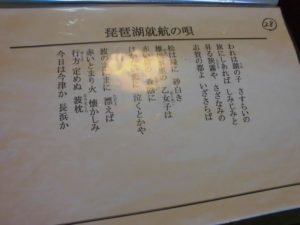 28
琵琶湖就航の唄
われは湖の子 さすらいの
旅にしあれば しみじみと
昇る狭霧や さざなみの
志賀の都よ いざさらば
松は緑に 砂白き
雄松が里の 乙女子は
赤い 森蔭に
泣くとかや
波のまにまに 漂えば
赤いとまり火 懐かしみ
行方定めぬ 波枕
今日は今津か 長浜か